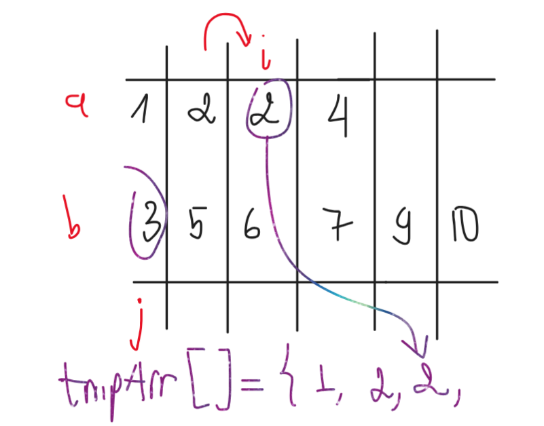 i
a 1 2 2 4
b 3 5 6 7 9 10
j
tmpArr[] = { 1, 2, 2,